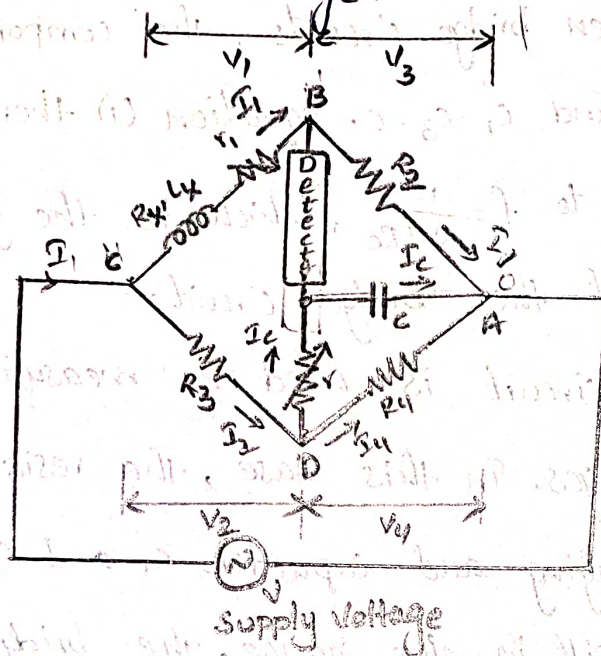 V1
V3
B
I1
r1
R2
Detector
Rx, Lx
I1
C
Ic
C
A
Ic
r
R3
R4
I2
I4
D
V2
V4
V
Supply Voltage